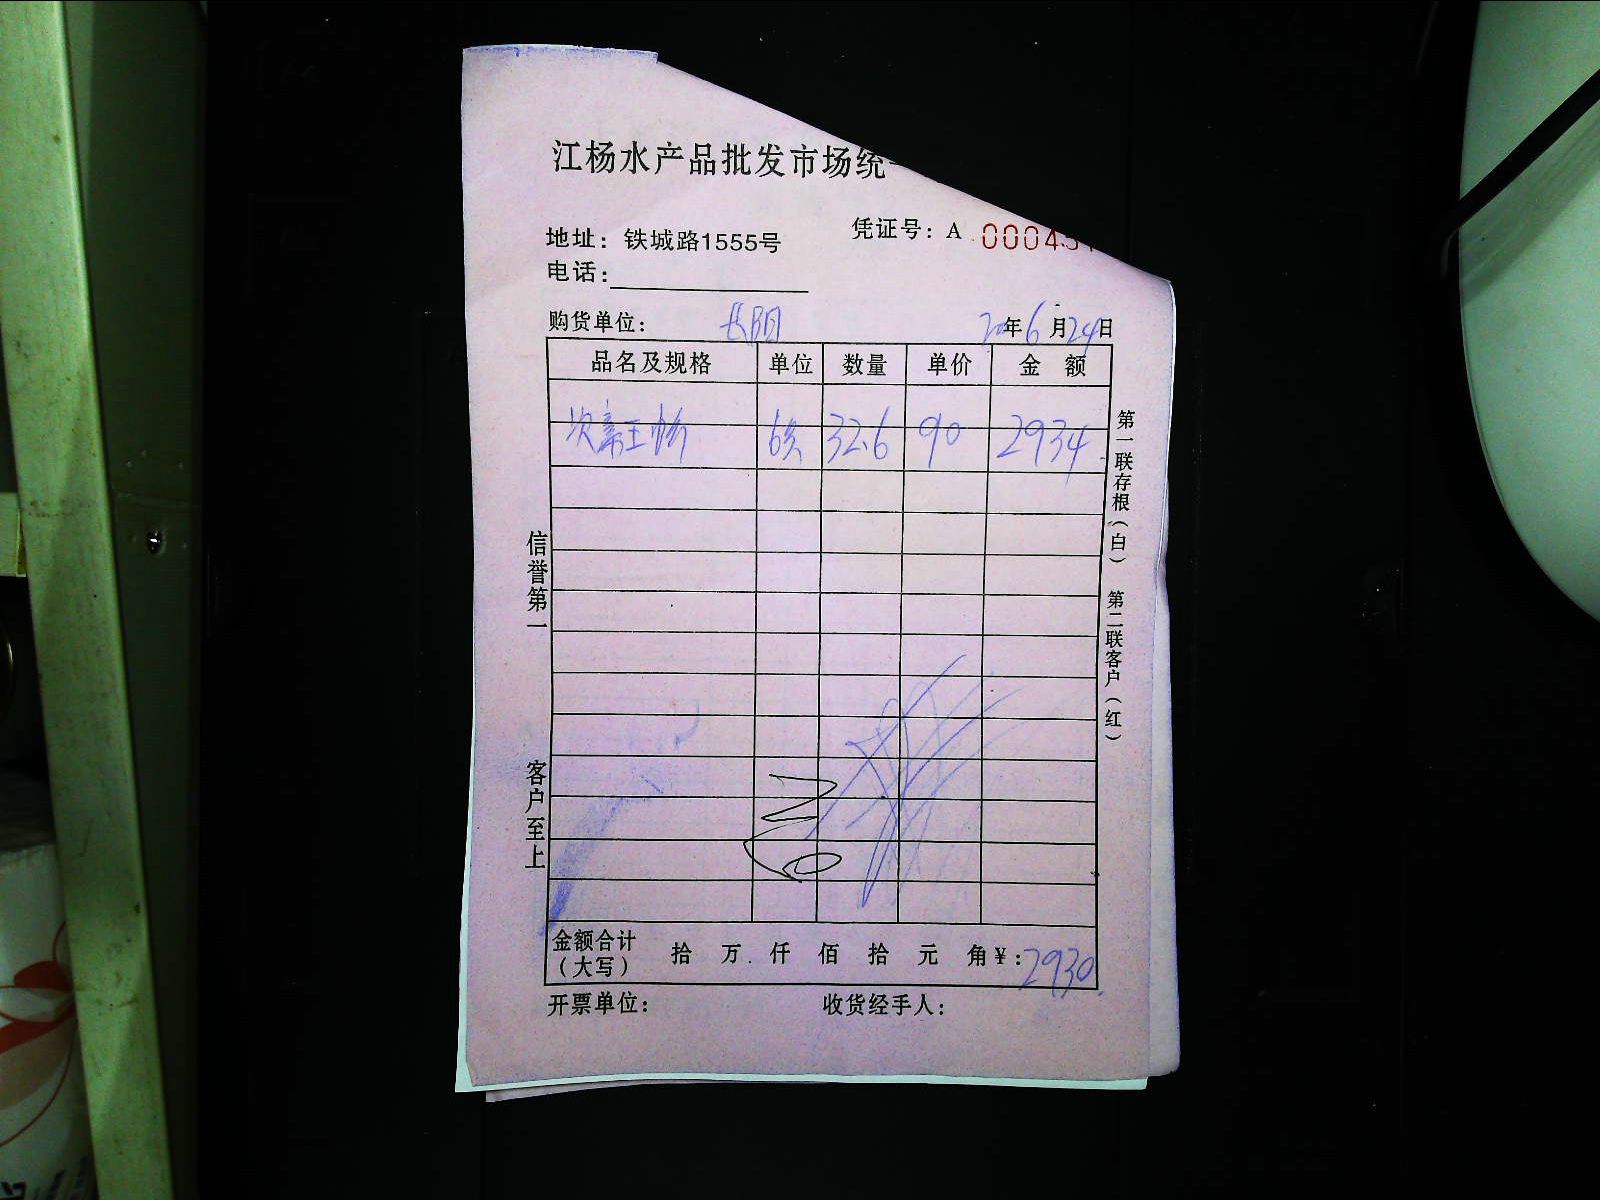 江杨水产品批发市场统一
凭证号：A 000451
地址：铁城路1555号
电话：
购货单位： 长阳 20年6月24日
品名及规格 单位 数量 单价 金 额
次帝王 6只 32.6 90 2934
信誉第一
客户至上
第一联存根（白） 第二联客户（红）
金额合计（大写） 拾 万 仟 佰 拾 元 角 ¥：2930.
开票单位： 收货经手人：